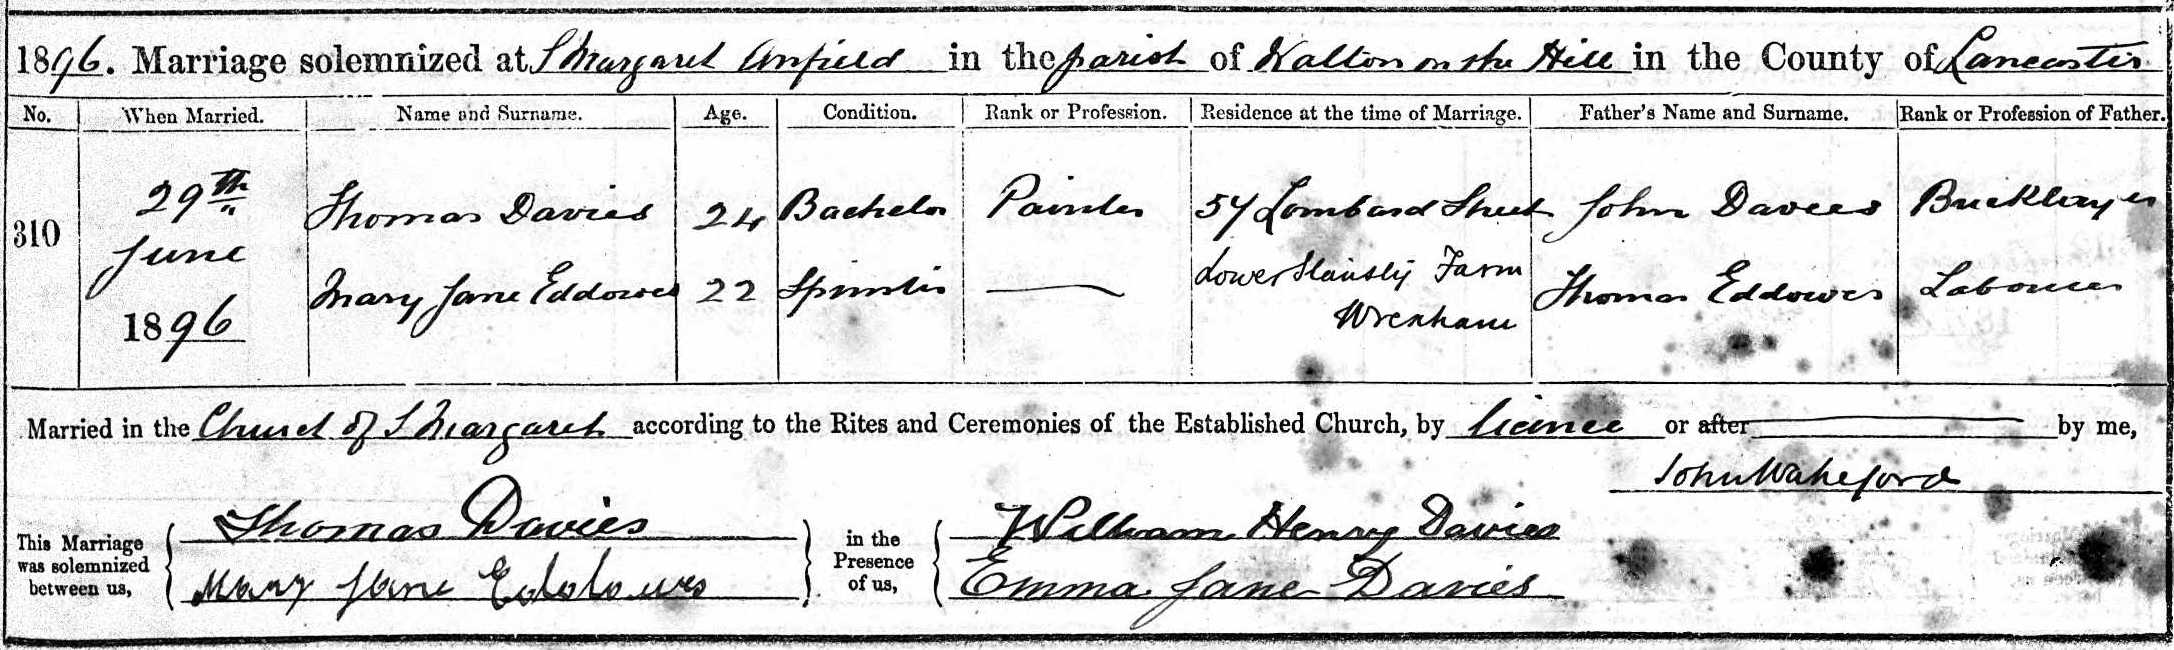 1896. Marriage solemnized at S Margaret Anfield in the parish of Walton on the Hill in the County of Lancaster
No. When Married. Name and Surname. Age. Condition. Rank or Profession. Residence at the time of Marriage. Father's Name and Surname. Rank or Profession of Father.
310
29th
June
1896
Thomas Davies 24 Bachelor Painter 57 Lombard Street John Davies Bricklayer
Mary Jane Eddowes 22 Spinster — Lower Farm
Wrexham
Thomas Eddowes Labourer
Married in the Church of S Margaret according to the Rites and Ceremonies of the Established Church, by licence or after by me,
John Wakeford
This Marriage
was solemnized
between us,
Thomas Davies
Mary Jane Eddowes
in the
Presence
of us,
William Henry Davies
Emma Jane Davies